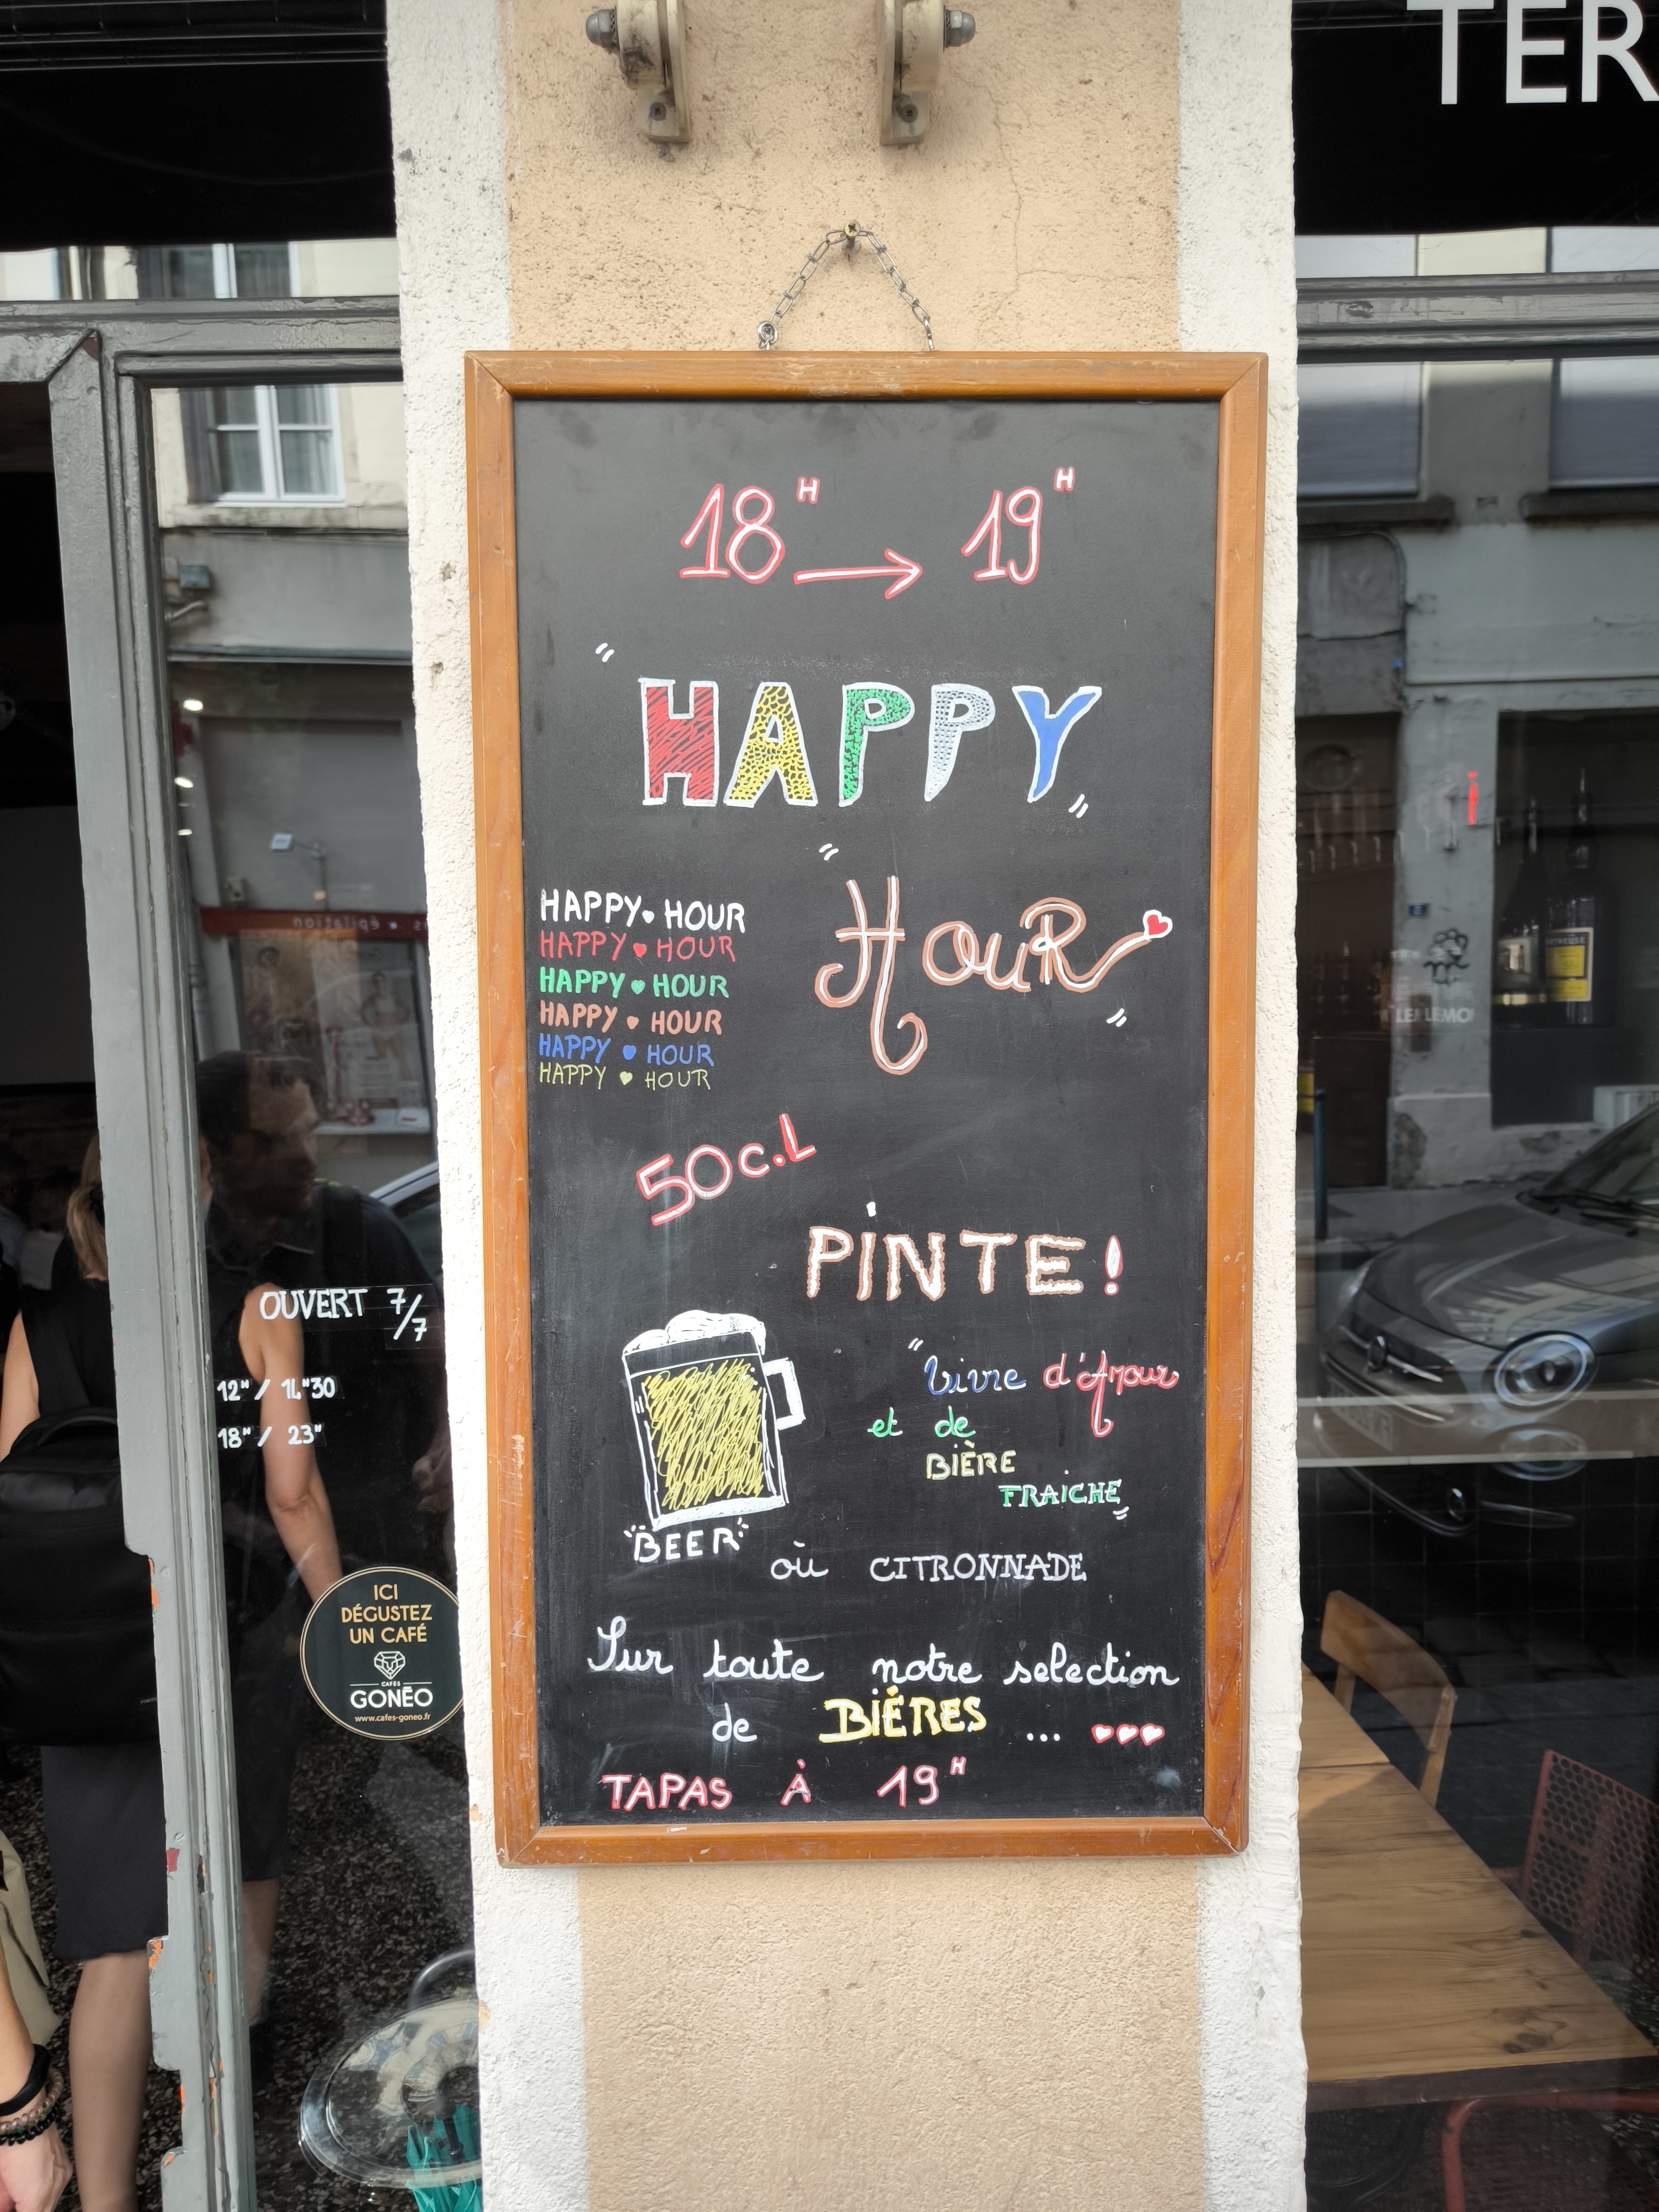 TER
18H → 19H
"HAPPY"
"HOUR"
HAPPY HOUR
HAPPY HOUR
HAPPY HOUR
HAPPY HOUR
HAPPY HOUR
HAPPY HOUR
50c.L
PINTE!
"Vivre d'Amour
et de
BIÈRE
FRAICHE"
"BEER"
où CITRONNADE
Sur toute notre selection
de BIÉRES ...
TAPAS À 19H
OUVERT 7/7
12H / 14H30
18H / 23H
ICI
DÉGUSTEZ
UN CAFÉ
CAFES
GONĒO
www.cafes-goneo.fr